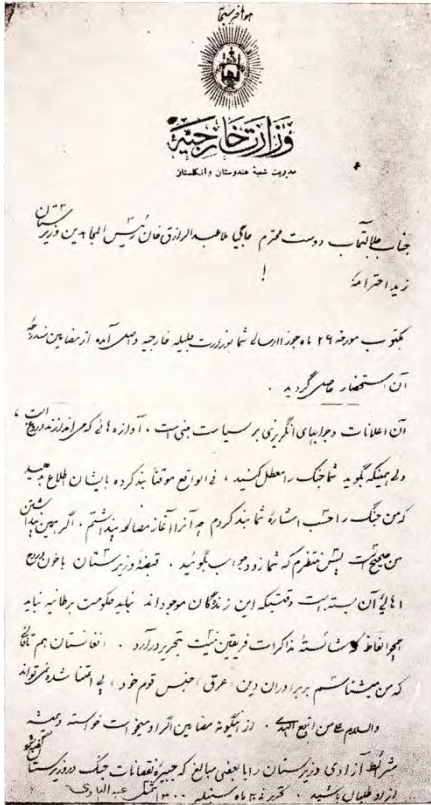 وزارت خارجیه
مدیریت شعبهٔ هندوستان و انگلستان
جناب جلالتمآب دوست محترم حاجی ملا عبدالرازق خان رئیس المجاهدین وزیرستان
زید احترامهٔ !
مکتوب مورخهٔ ۲۹ ماه جوزا ارسالی شما بوزارت جلیله خارجیه واصل آمده از مضامین مندرجهٔ
آن استحضار حاصل گردید .
آن اعلانات و جوابهای انگریزی بر سیاست مبنی است ، آوازه هائی که می اندازند دروغ است
ولی همینکه بگوید شما جنگ را معطل کنید ، فی الواقع موقتاً بند کرده بایشان اطلاع بدهید
که من جنگ را حسب اشارهٔ شما بند کردم چه آنرا آغاز مصالحه پنداشتم ، اگر همین پنداشتن
من صحیح است پس منتظرم که شما زود جواب بگوئید . قبضهٔ وزیرستان باخون
اهالی آن بسته است وقتیکه این زندگان موجود اند نباید حکومت برطانیه نباید
همچو الفاظ شائستهٔ مذاکرات فریقین نیست تحریر در آرد . افغانستان هم تا جائی
که من میشناسم بر برادران دین عرق جنس قوم خود بی اعتنا شده نمی تواند
والسلام علی من اتبع الهدی . از اینگونه مضامین اگر او میخواست خواسته
شرائط آزادی وزیرستان را با بعضی مبالغ که جبیرهٔ نقصانات جنگ در وزیرستان
ازاو طلب باشید . تحریر ماه سنبله ۱۳۰۰